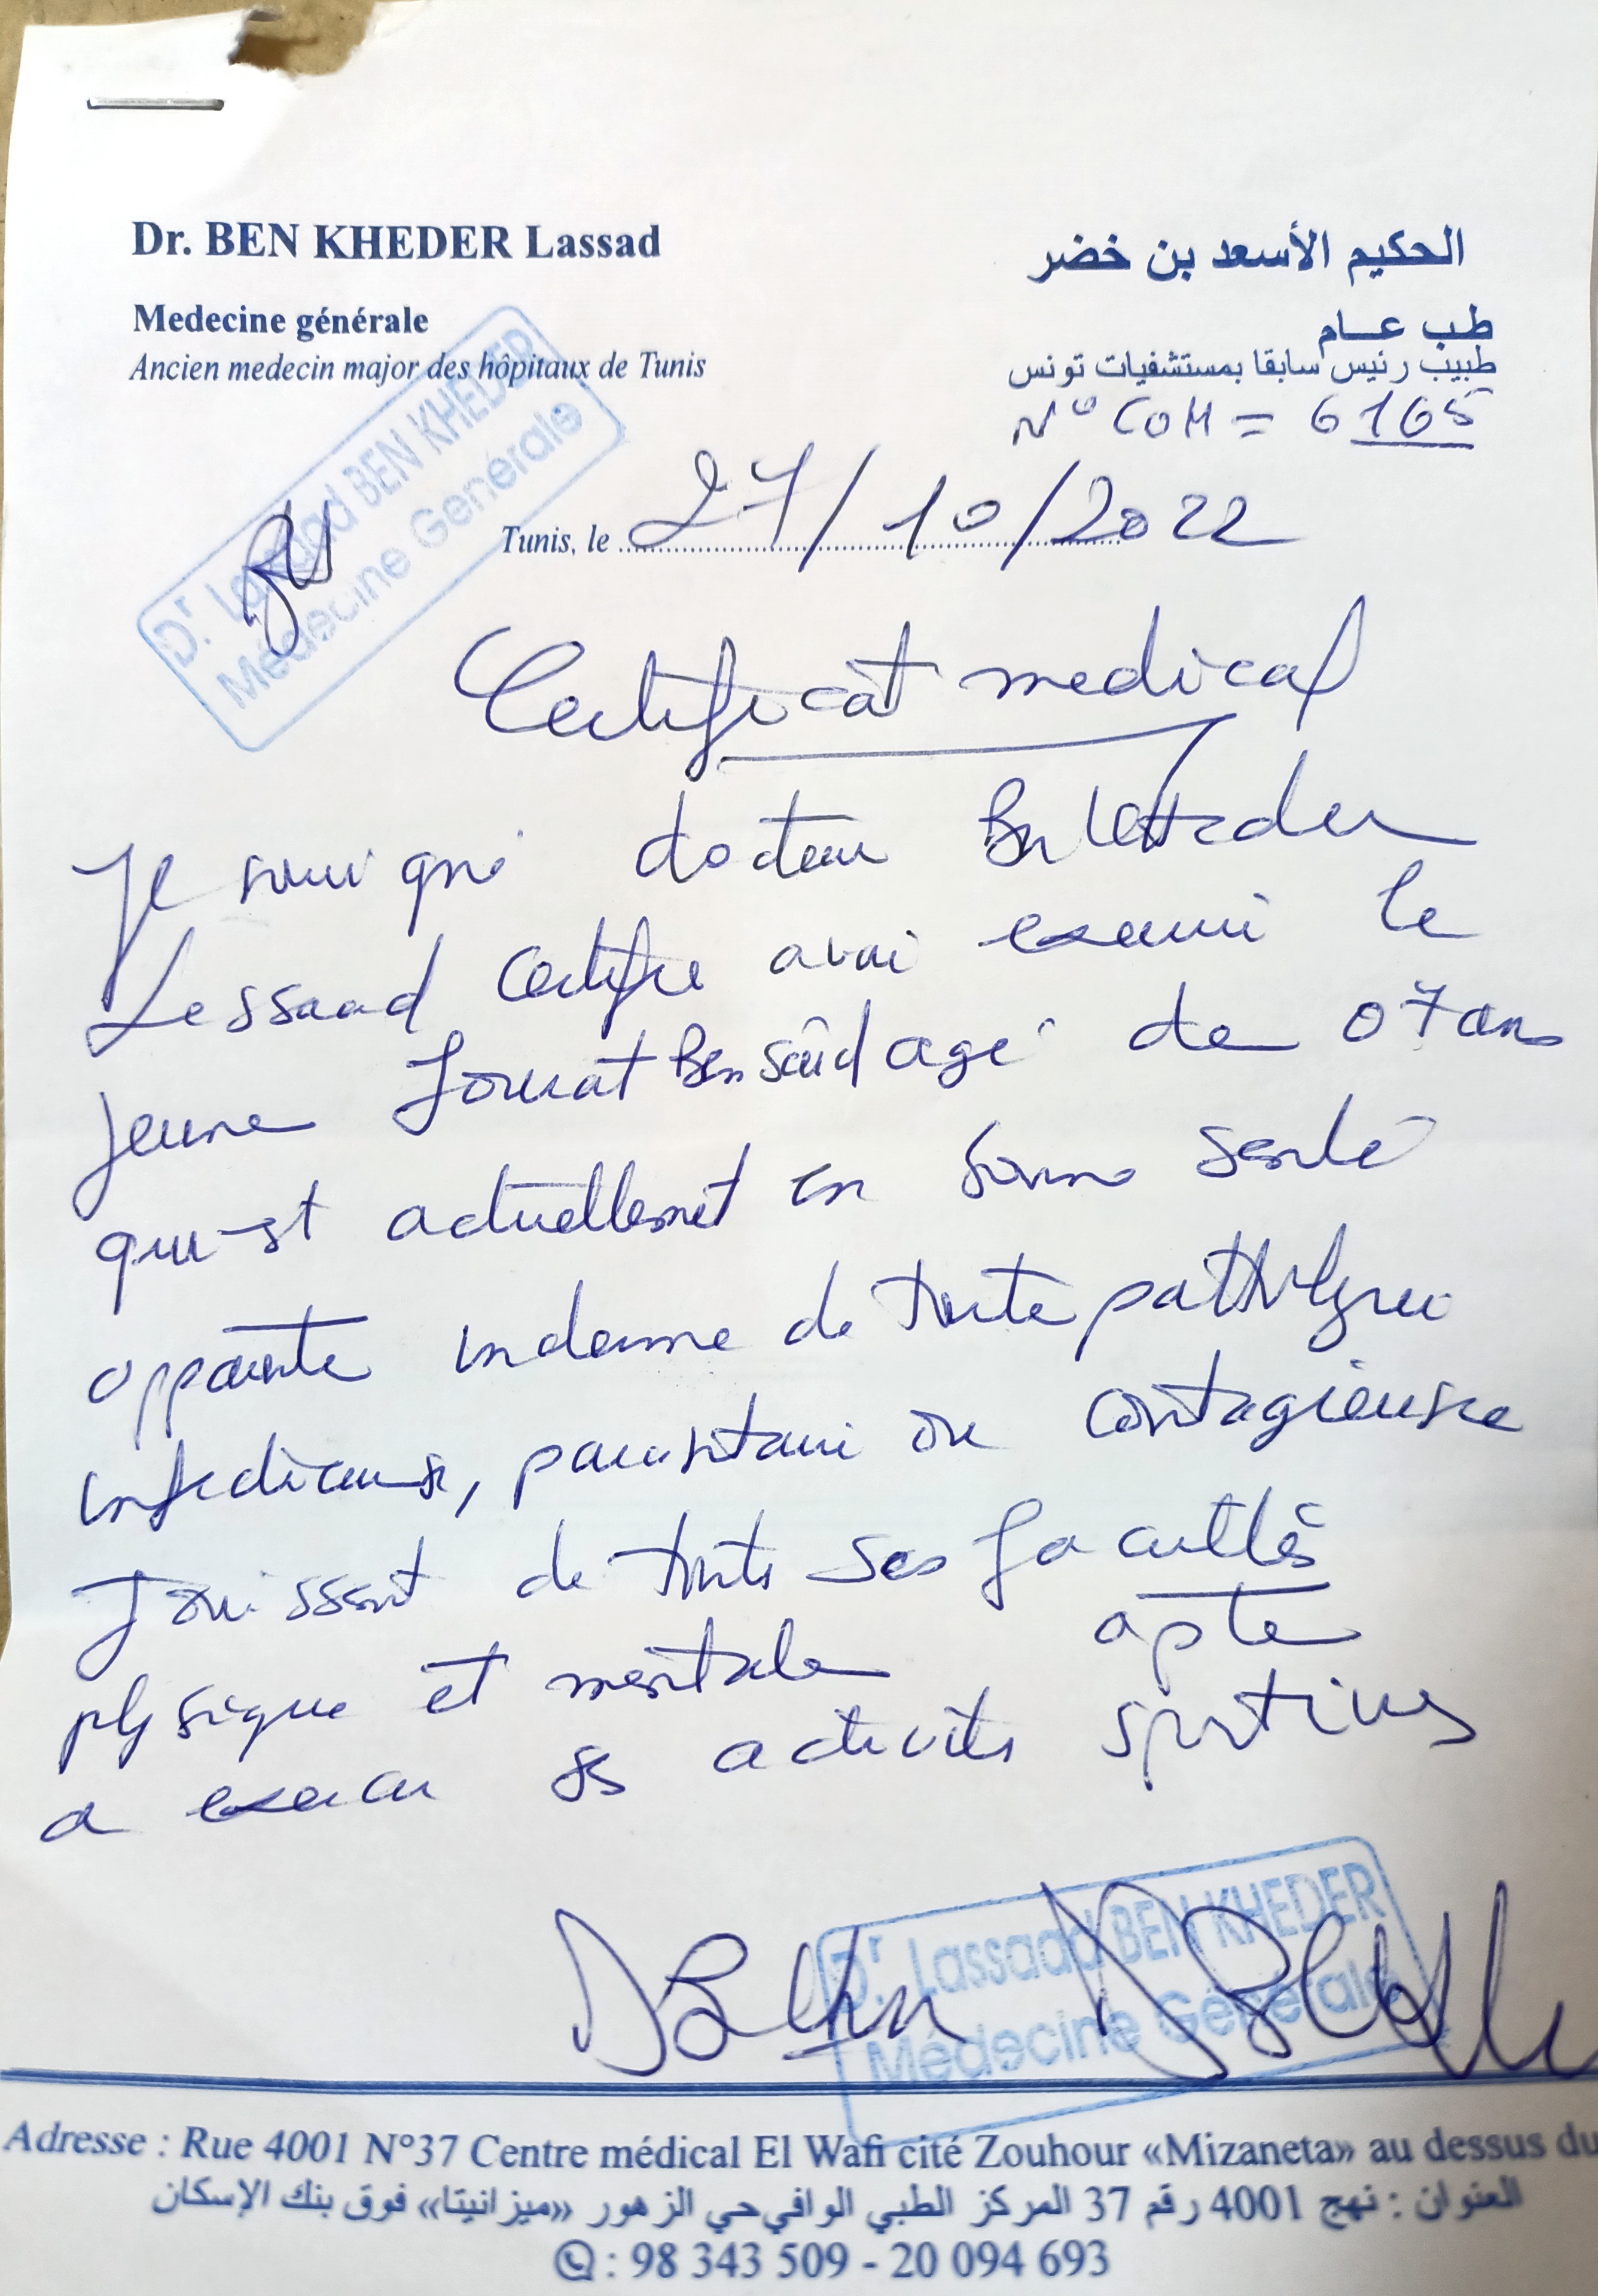 Dr. BEN KHEDER Lassad
الحكيم الأسعد بن خضر
Medecine générale
طب عـــام
Ancien medecin major des hôpitaux de Tunis
طبيب رئيس سابقا بمستشفيات تونس
N° COM = 6165
Dr. Lassaad BEN KHEDER
Médecine Générale
Tunis, le 27/10/2022
Certificat medical
Je soussigné docteur Ben Kheder
Lessaad certifie avoir examiné le
jeune Ben Saïd agé de 07 ans
qui est actuellement en bonne santé
apparente indemne de toute pathologie
infectieuse, parasitaire ou contagieuse
Jouissant de toute ses facultés
physique et mentale apte
a exercer ses activités sportives
Dr. Lassaad BEN KHEDER
Médecine Générale
Adresse : Rue 4001 N°37 Centre médical El Wafi cité Zouhour «Mizaneta» au dessus du
العنوان : نهج 4001 رقم 37 المركز الطبي الوافي حي الزهور «ميزانيتا» فوق بنك الإسكان
: 98 343 509 - 20 094 693